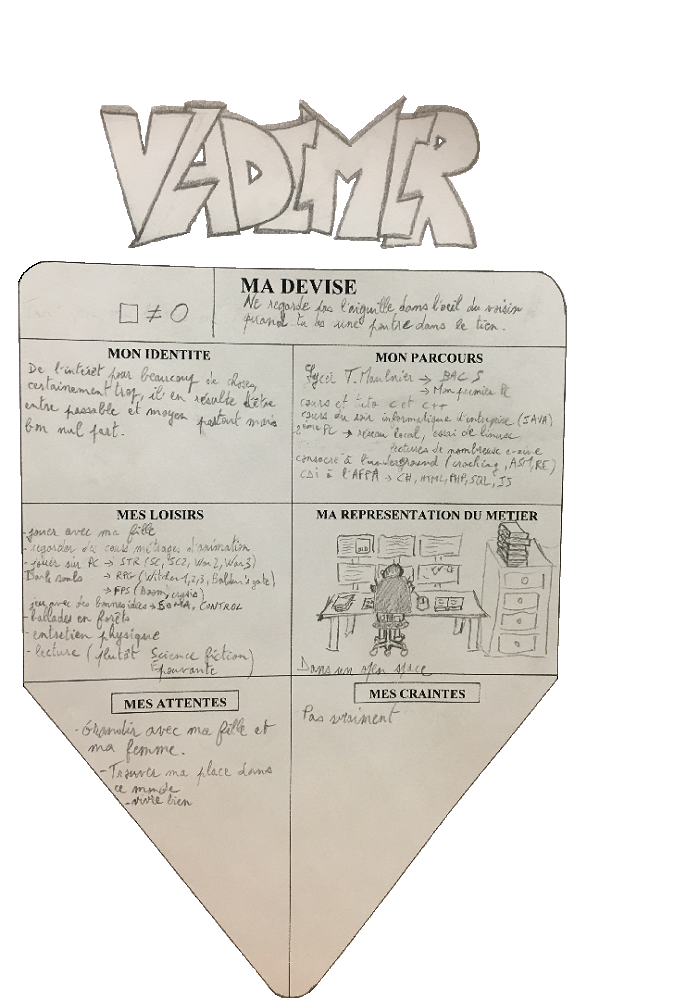 VLADIMIR
MA DEVISE
□ ≠ O
Ne regarde pas l'aiguille dans l'œil du voisin
quand tu as une poutre dans le tien.
MON IDENTITE
De l'intérêt pour beaucoup de choses,
certainement trop, il en résulte d'être
entre passable et moyen partout mais
bon nul part.
MON PARCOURS
Lycée T. Maulnier → BAC S
→ Mon premier PC
cours et tuto C et C++
cours du soir informatique d'entreprise (JAVA)
2ème PC → réseau local, essai de linux
lectures de nombreuse
consacré à l'underground (cracking, ASM, RE)
CDI à l'AFPA → C#, HTML, PHP, SQL, JS
MES LOISIRS
- jouer avec ma fille
- regarder des courts métrages d'animation
- jouer sur PC → STR (SC, SC2, War2, War3)
Dark souls → RPG (Witcher 1,2,3, Baldur's gate)
→ FPS (Doom, crysis)
jeux avec des bonnes idées → SOMA, CONTROL
- ballades en forêts
- entretien physique
- lecture (plutôt Science fiction)
Epouvante
MA REPRESENTATION DU METIER
Dans un open space
MES ATTENTES
- Grandir avec ma fille et
ma femme.
- Trouver ma place dans
ce monde
- vivre bien
MES CRAINTES
Pas vraiment